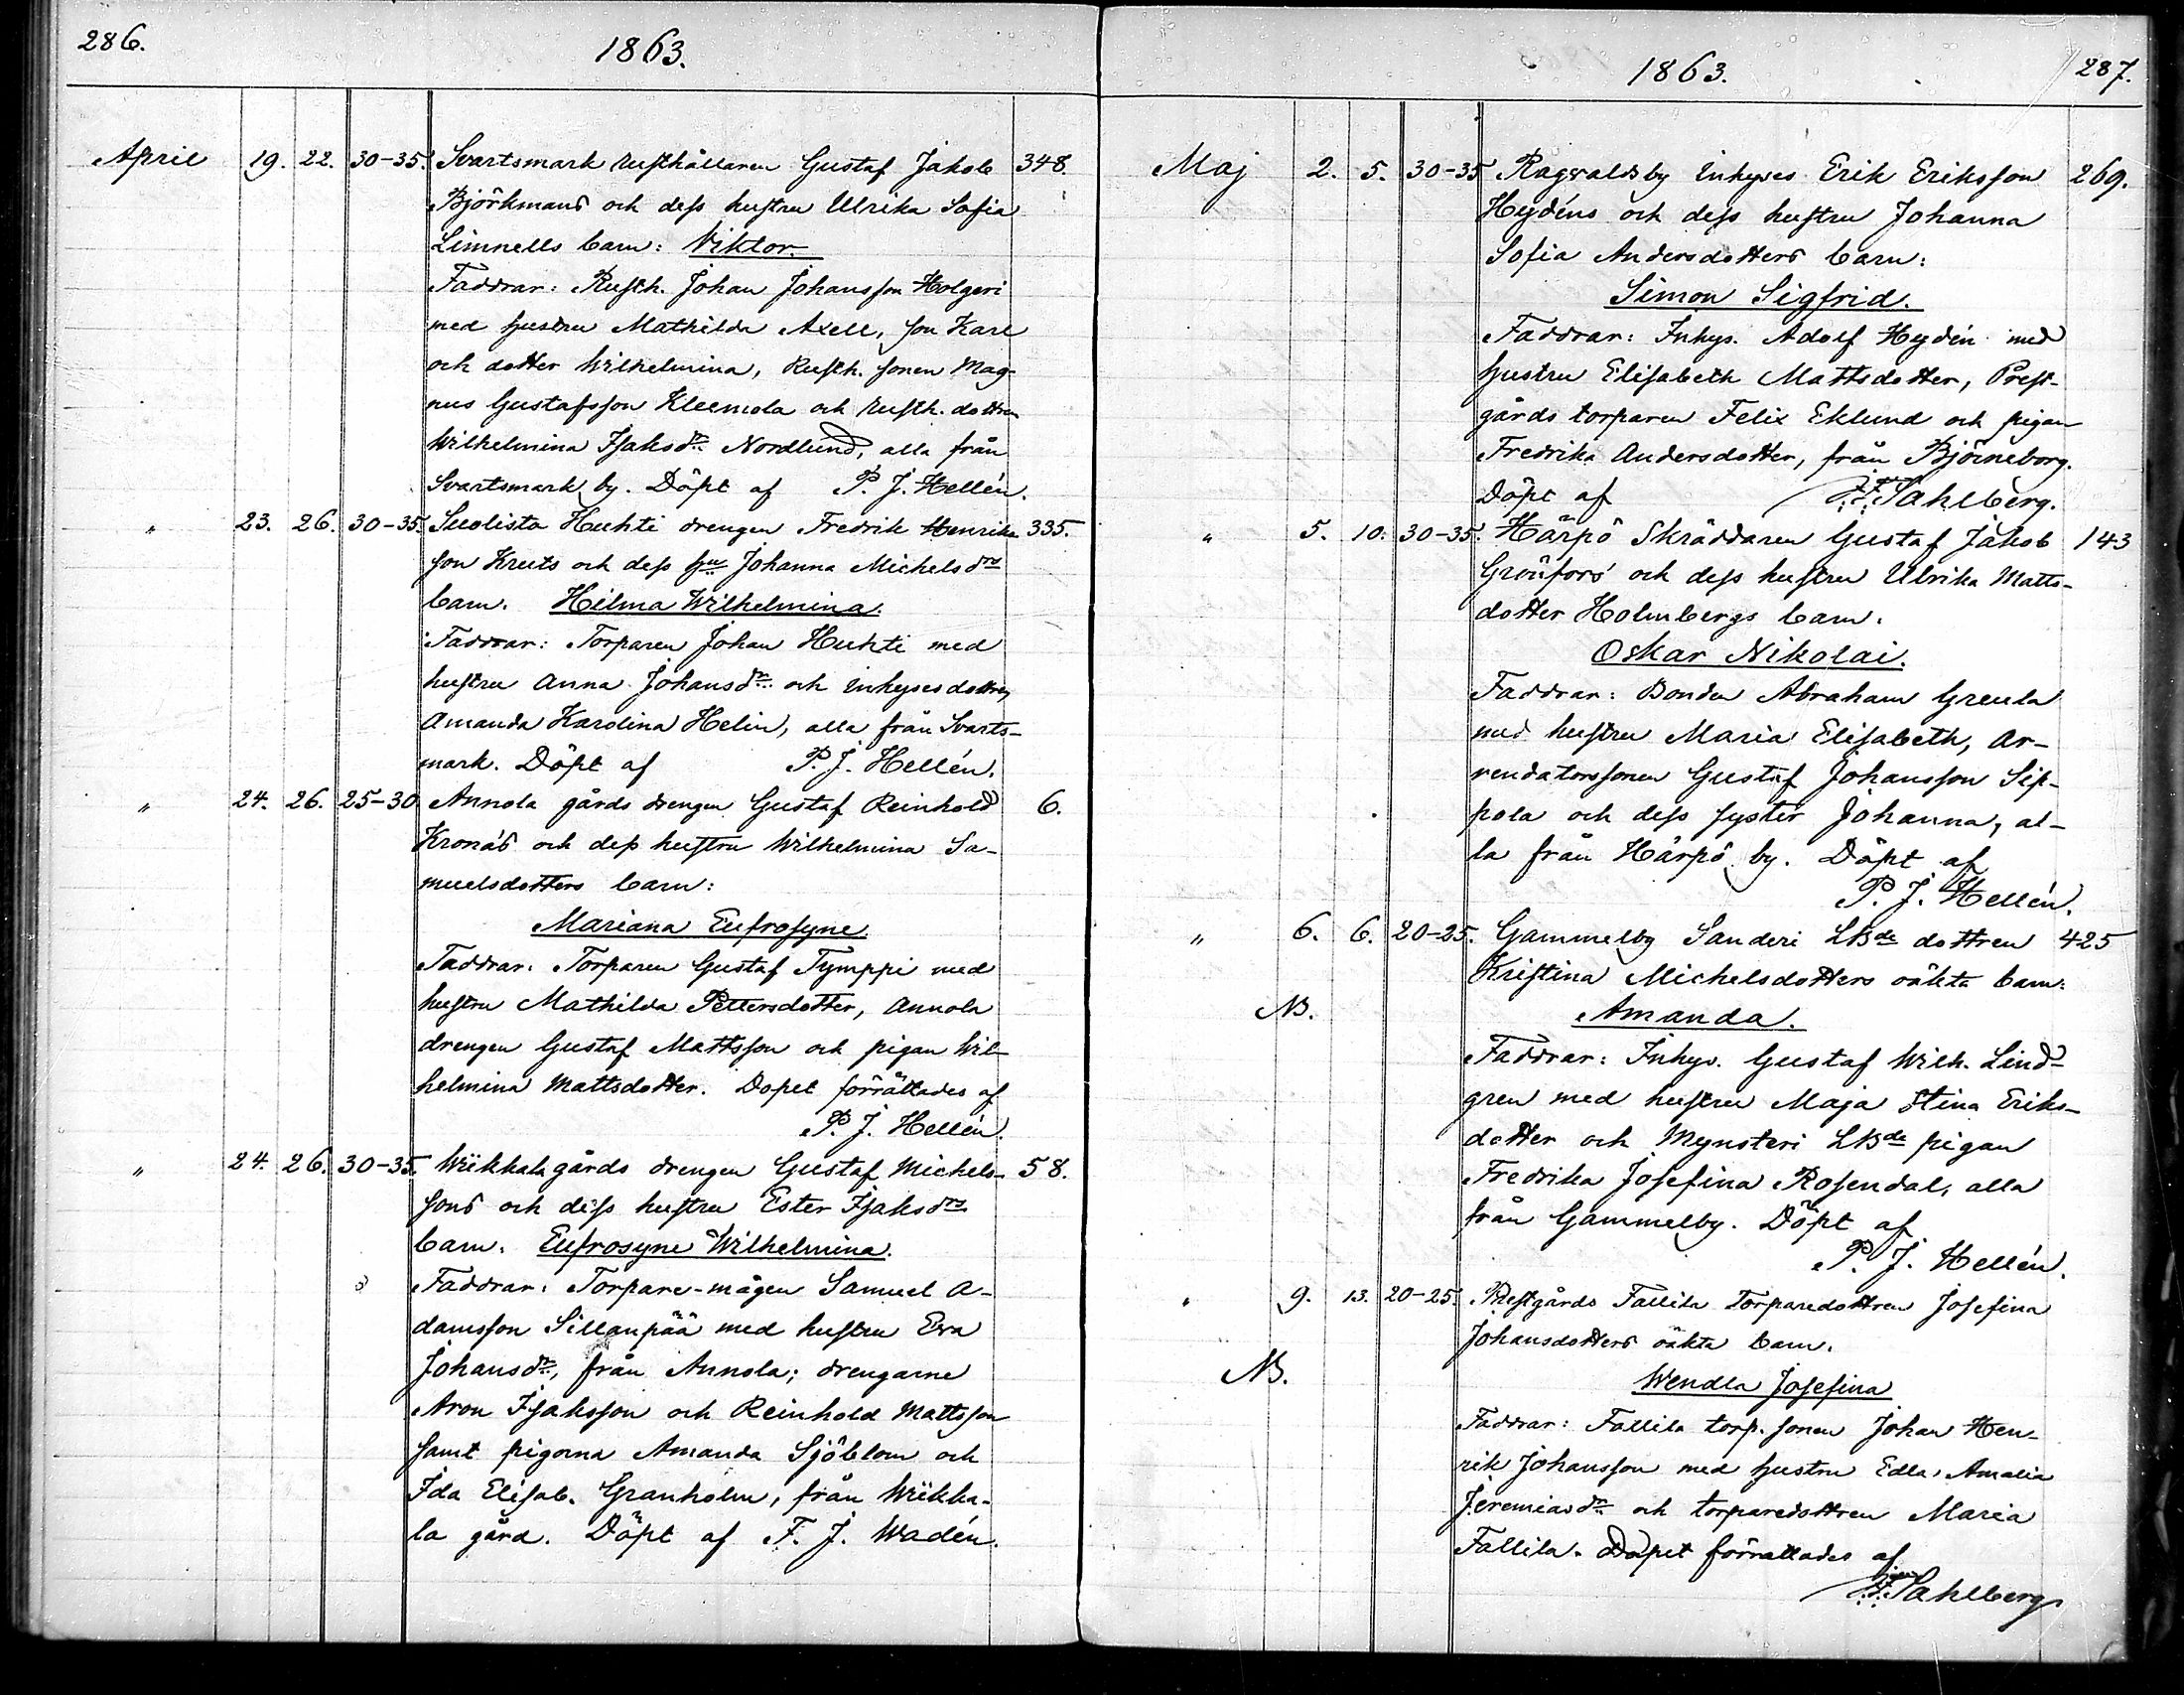 286.
1863.
April 19. 22. 30-35. Svartsmark rusthållaren Gustaf Jakob 348.
Björkmans och dess hustru Ulrika Sofia
Limnells barn: Viktor.
Faddrar: Rusth. Johan Johansson Holgeri
med hustru Mathilda Axell, son Karl
och dotter Wilhelmina, Rusth. sonen Mag-
nus Gustafsson Kleemola och rusth. dottren
Wilhelmina Isaksdr Nordlund, alla från
Svartsmark by. Döpt af P. J. Hellén.
" 23. 26. 30-35. Suolista Huhti drengen Fredrik Henriks- 335.
son Kreets och dess hu Johanna Michelsdrs
barn. Hilma Wilhelmina.
Faddrar: Torparen Johan Huhti med
hustru Anna Johansdr och inhysesdottren
Amanda Karolina Helin, alla från Svarts-
mark. Döpt af P. J. Hellén.
" 24. 26. 25-30 Annola gårds drengen Gustaf Reinhold 6.
Kronás och dess hustru Wilhelmina Sa-
muelsdotters barn:
Mariana Eufrosyne.
Faddrar. Torparen Gustaf Tymppi med
hustru Mathilda Pettersdotter, Annola
drengen Gustaf Mattsson och pigan Wil-
helmina Mattsdotter. Dopet förrättades af
P. J. Hellén.
" 24. 26. 30-35. Wiikkala gårds drengen Gustaf Michels- 58.
sons och dess hustru Ester Isaksdrs
barn. Eufrosyne Wilhelmina.
Faddrar: Torpare-mågen Samuel A-
damsson Sillanpää med hustru Eva
Johansdr, från Annola; drengarne
Aron Isaksson och Reinhold Mattsson
samt pigorna Amanda Sjöblom och
Ida Elisab. Granholm, från Wiikka-
la gård. Döpt af F. J. Wadén.
1863.
287.
Maj 2. 5. 30-35 Ragvaldsby Inhyses Erik Eriksson 269.
Heydéns och dess hustru Johanna
Sofia Andersdotters barn:
Simon Sigfrid.
Faddrar: Inhys. Adolf Heydén med
hustru Elisabeth Mattsdotter, Prest-
gårds torparen Felix Eklund och pigan
Fredrika Andersdotter, från Björneborg.
Döpt af F. F. Sahlberg.
" 5. 10. 30-35. Härpö Skräddaren Gustaf Jakob 143
Grönfors och dess hustru Ulrika Matts-
dotter Holmbergs barn.
Oskar Nikolai.
Faddrar: Bonden Abraham Greula
med hustru Maria Elisabeth, Ar-
rendatorssonen Gustaf Johansson Sip-
pola och dess syster Johanna, al-
la från Härpö by. Döpt af
P. J. Hellén.
" 6. 6. 20-25. Gammelby Sanderi LBde dottren 425
Kristina Michelsdotters oäkta barn:
NB. Amanda.
Faddrar: Inhys. Gustaf Wilh. Lind-
gren med hustru Maja Stina Eriks-
dotter och Mynsteri LBde pigan
Fredrika Josefina Rosendal, alla
från Gammelby. Döpt af
P. J. Hellén.
" 9. 13. 20-25. Prestgårds Fallila Torparedottren Josefina
Johansdotters oäkta barn.
NB. Wendla Josefina
Faddrar: Fallila torp. sonen Johan Hen-
rik Johansson med hustru Edla Amalia
Jeremiasdr och torparedottren Maria
Fallila. Dopet förrättades af
F. F. Sahlberg